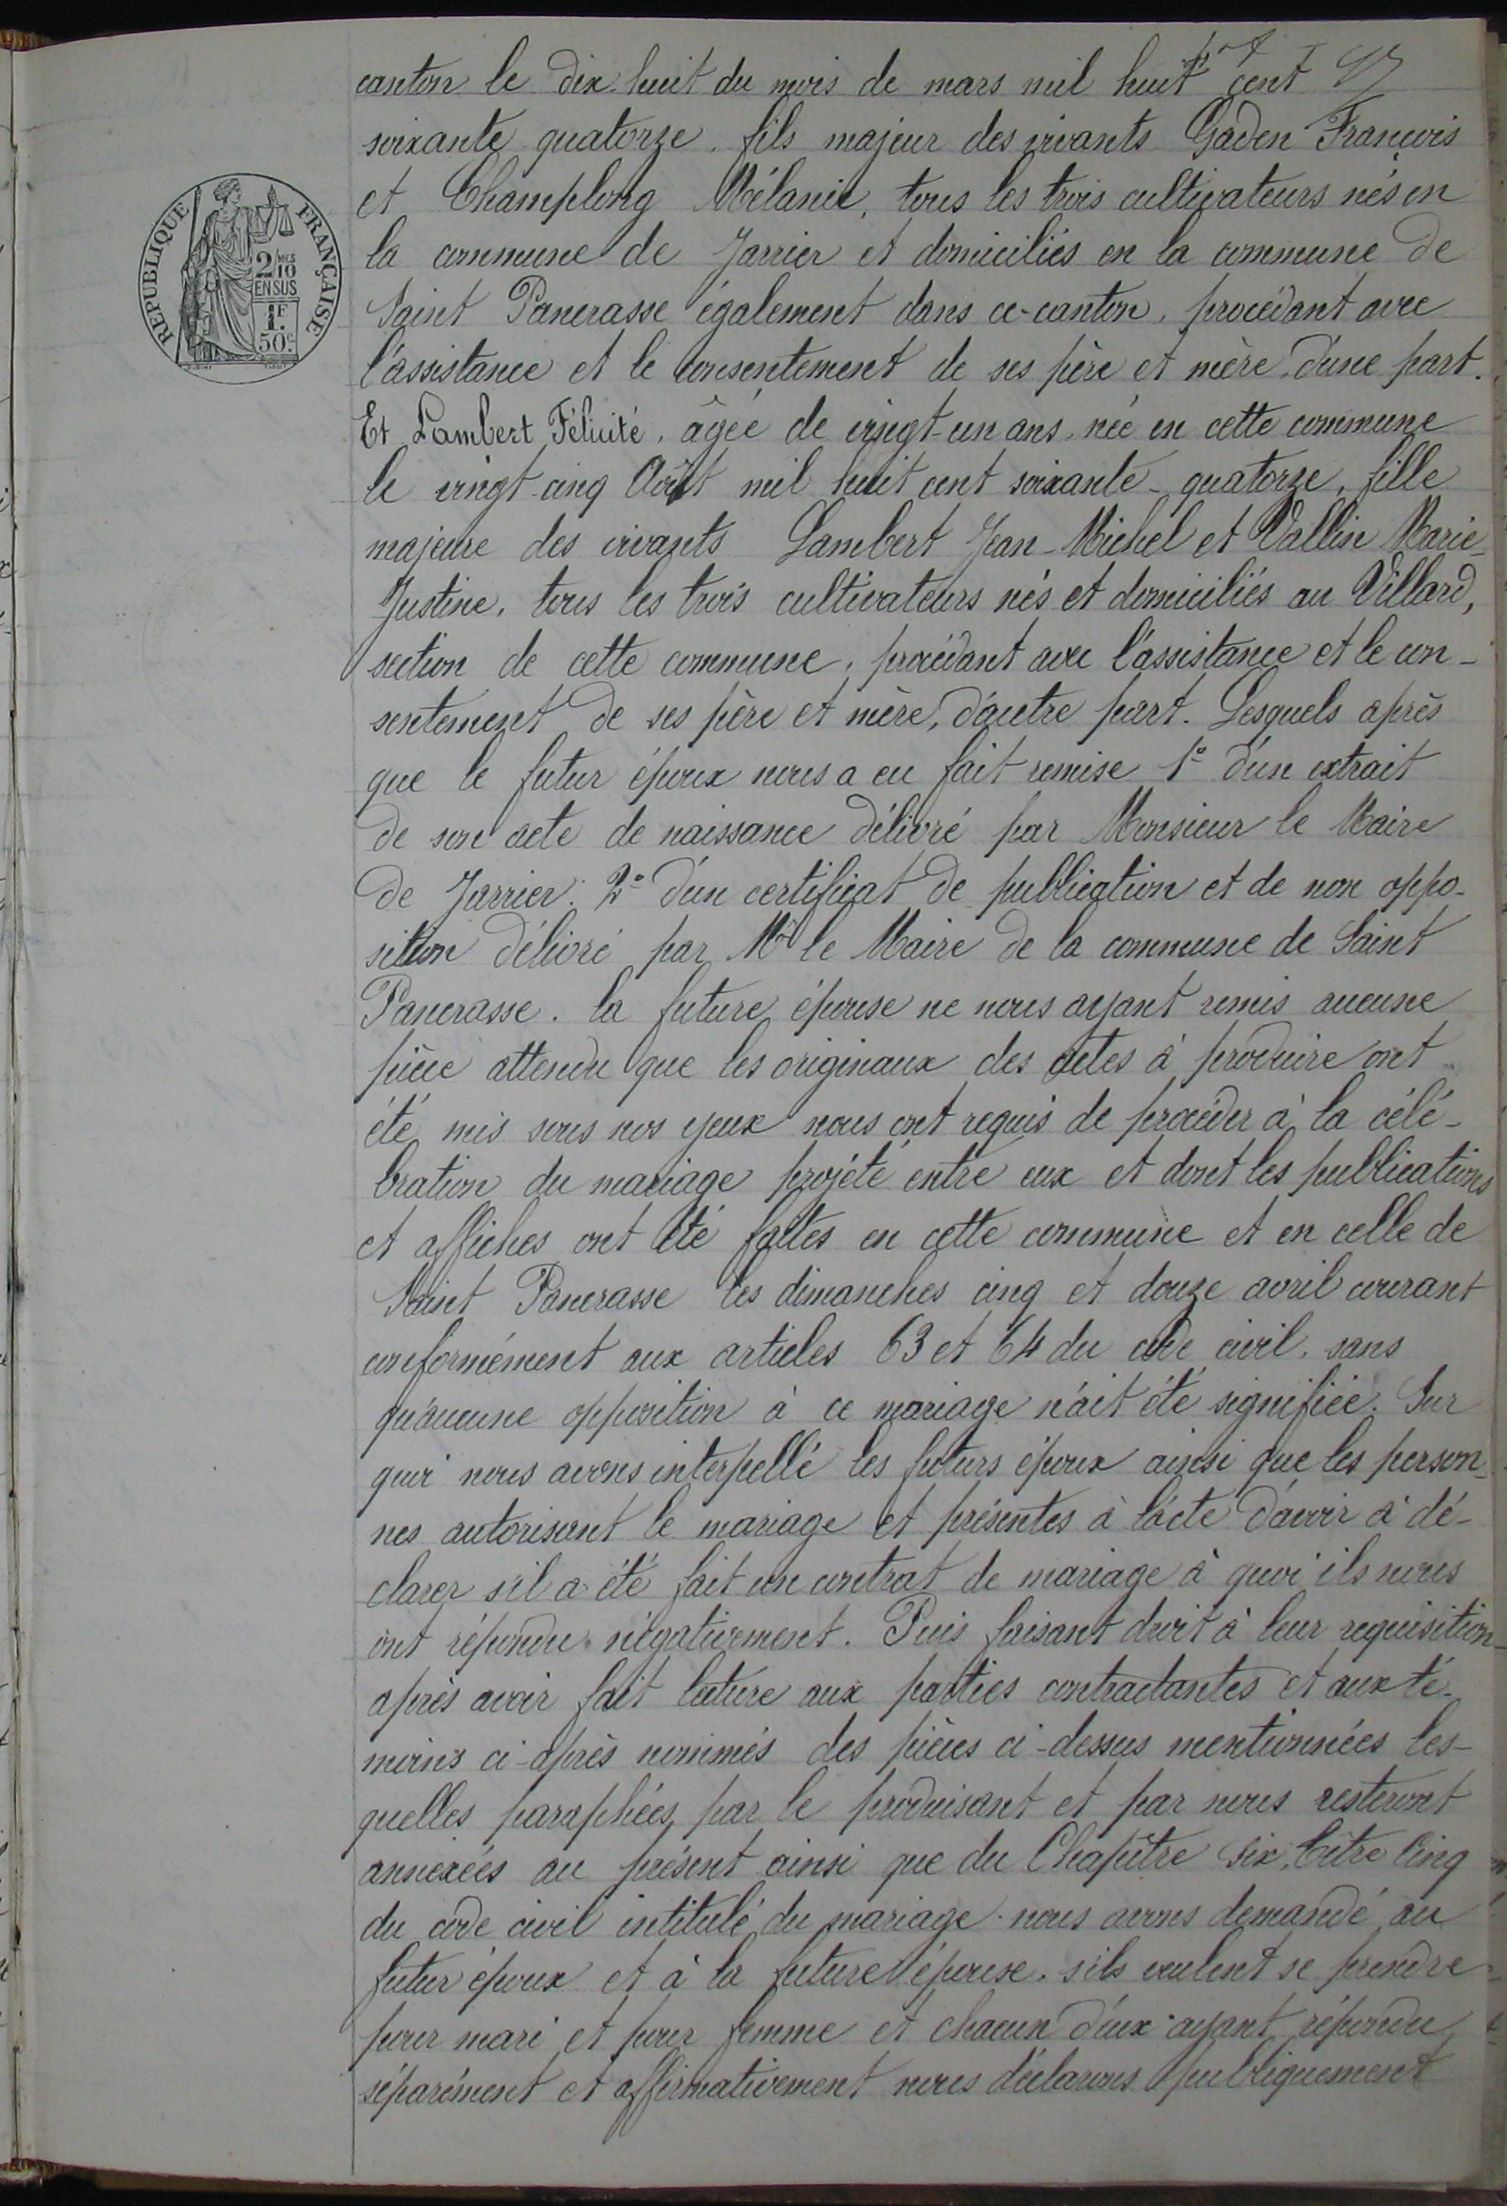 canton le dix-huit du mois de mars mil huit cent
soixante quatorze, fils majeur des vivants Gaden François
et Champlong Mélanie, tous les trois cultivateurs nés en
la commune de Jarrier et domiciliés en la commune de
Saint Pancrasse également dans ce canton, procédant avec
l'assistance et le consentement de ses père et mère, d'une part.
Et Lambert Félicité, âgée de vingt-un ans, née en cette commune
le vingt-cinq Août mil huit cent soixante-quatorze, fille
majeure des vivants Lambert Jean-Michel et Vallin Marie-
Justine, tous les trois cultivateurs nés et domiciliés au Villard,
section de cette commune, procédant avec l'assistance et le con-
sentement de ses père et mère, d'autre part. Lesquels après
que le futur époux nous a eu fait remise 1° d'un extrait
de son acte de naissance délivré par Monsieur le Maire
de Jarrier. 2° d'un certificat de publication et de non oppo-
sition délivré par Mr le Maire de la commune de Saint
Pancrasse. la future épouse ne nous ayant remis aucune
pièce attendu que les originaux des actes à produire ont
été mis sous nos yeux nous ont requis de procéder à la célé-
bration du mariage projété entre eux et dont les publications
et affiches ont été faites en cette commune et en celle de
Saint Pancrasse les dimanches cinq et douze avril courant
conformément aux articles 63 et 64 du code civil. sans
qu'aucune opposition à ce mariage n'ait été signifiée. Sur
quoi nous avons interpellé les futurs époux ainsi que les person-
nes autorisant le mariage et présentes à l'acte d'avoir à dé-
clarer s'il a été fait un contrat de mariage à quoi ils nous
ont répondu négativement. Puis faisant droit à leur requisition
après avoir fait lecture aux parties contractantes et aux té-
moins ci-après nommés des pièces ci-dessus mentionnées les-
quelles paraphées par le produisant et par nous resteront
annexées au présent ainsi que du Chapitre six, titre Cinq
du code civil intitulé du mariage. nous avons demandé au
futur époux et à la future épouse. s'ils veulent se prendre
pour mari et pour femme et chacun d'eux ayant répondu
séparément et affirmativement nous déclarons publiquement
RÉPUBLIQUE FRANÇAISE
2/10
MES
EN SUS
1F
50c